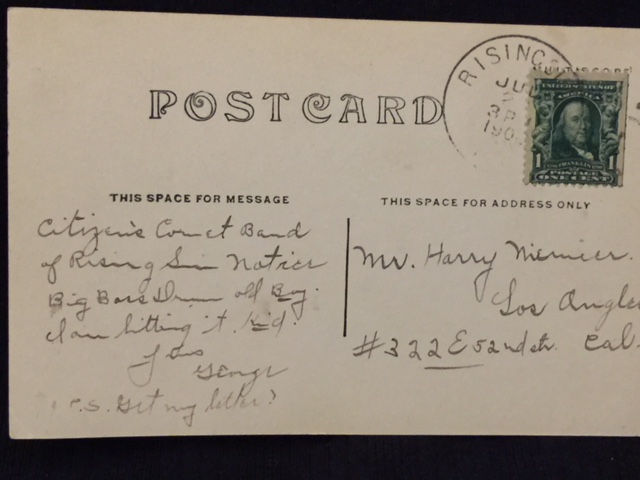 RISING
JUL
3 P
190
UNITED STATES OF
AMERICA
1 FRANKLIN 1
POSTAGE
ONE CENT
POST CARD
THIS SPACE FOR MESSAGE
THIS SPACE FOR ADDRESS ONLY
Citizen's Cornet Band
of Rising Sun Notice
Big Bass Drum old Boy.
I am hitting it Kid.
George
P.S. Get my letter?
Mr. Harry
Los Angles
#322 E 52nd str. Cal.